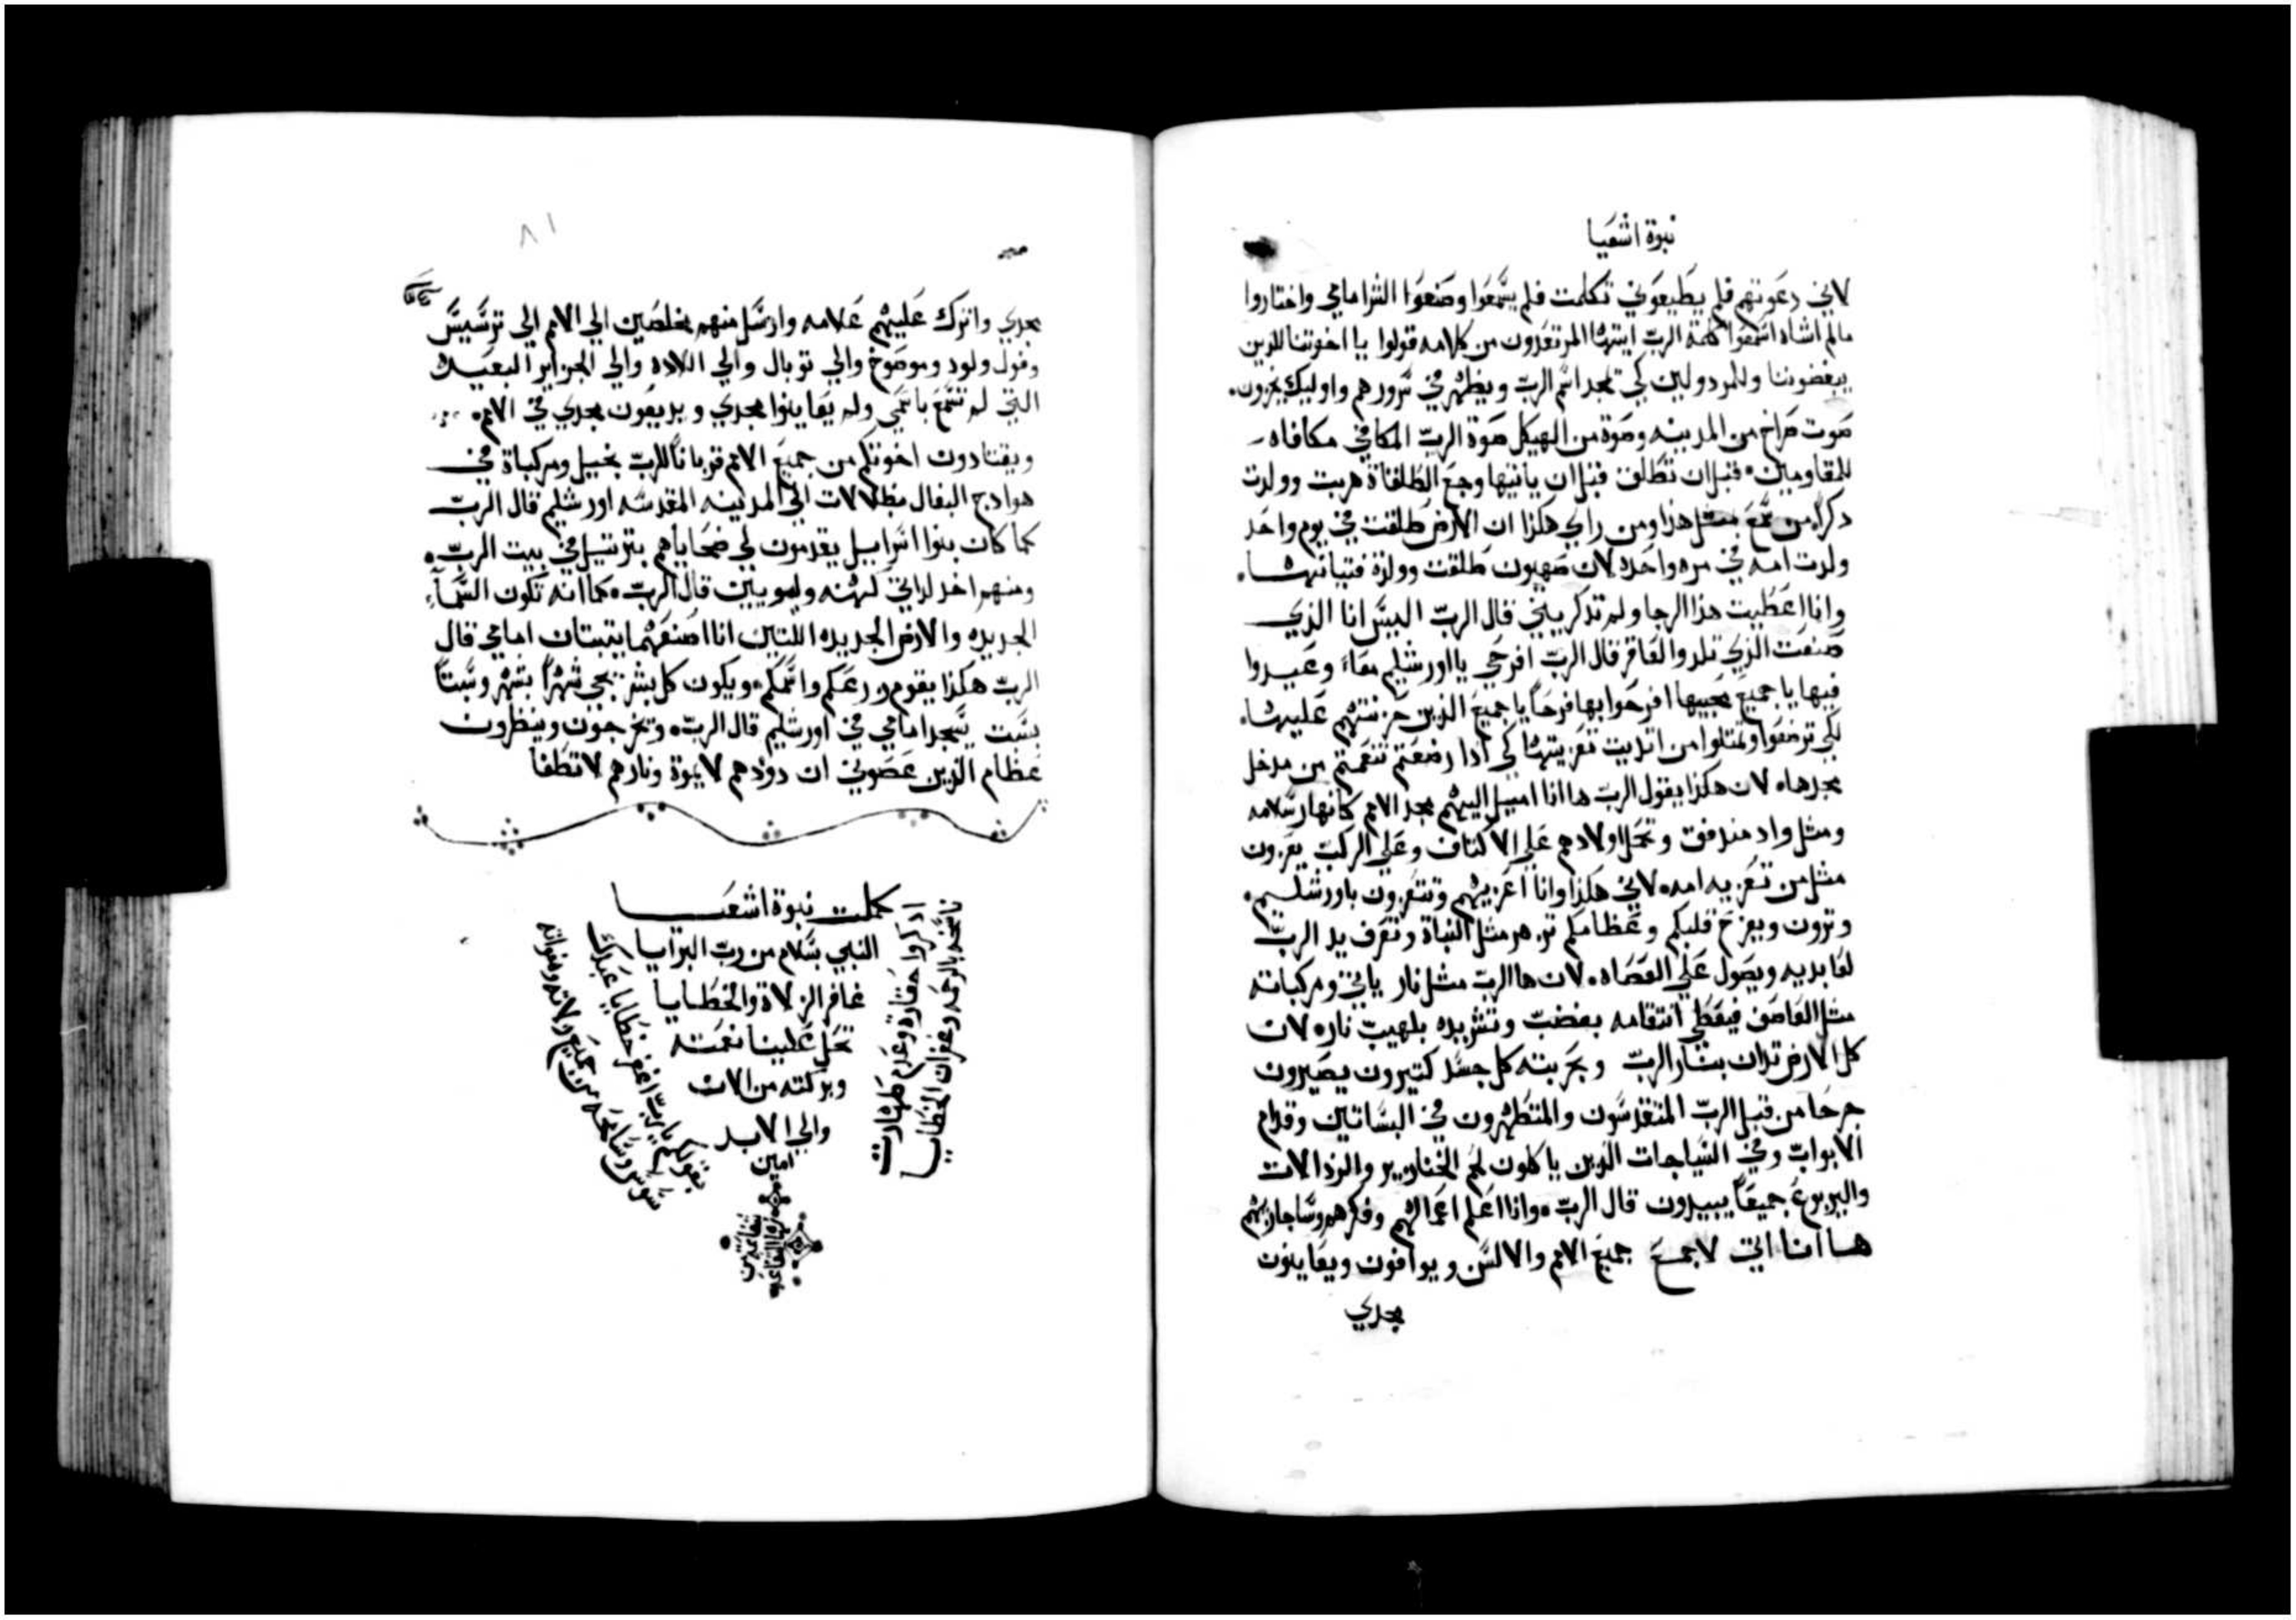 نبوة اشعيا
لاني دعوتهم فلم يطيعوني تكلمت فلم يسمعوا وصنعوا الشر امامي واختاروا
مالم اشاه اسمعوا كلمة الرب ايتها المرتعدون من كلامه قولوا يا اخوتنا للذين
يبغضوننا وللمردولين كي تمجد اسم الرب ويظهر في سرورهم واوليك يخزون
صوت صراخ من المدينه وصوة من الهيكل صوة الرب المكافي مكافاه
للمقاومين قبل ان تطلق قبل ان ياتيها وجع الطلقاة هربت وولدت
دكراً من سمع بمثل هذا ومن راي هكذا ان الارض طلقت في يوم واحد
ولدت امه في مره واحده لان صهيون طلقت وولدة فتيانها
وانا اعطيت هذا الرجا ولم تدكريني قال الرب اليس انا الذي
صنعت الذي تلد والعاقر قال الرب افرحي يا اورشليم معاً وعيدوا
فيها يا جميع محبيها افرحوا بها فرحاً يا جميع الذين حزنتم عليها
لكي ترضعوا وتمتلوا من اتديت تعزيتها كي ادا رضعتم تنعمتم من مدخل
مجدها لان هكذا يقول الرب ها انا اميل اليهم مجد الامم كانهار سلامه
ومثل واد مندفق وتحمل اولادهم علي الاكتاف وعلي الركب يعزون
مثل من تعزيه امه لاني هكذا وانا اعزيهم وتتعزون باورشليم
وترون ويفرح قلبكم وعظامكم تزهر مثل النباة وتعرف يد الرب
لعابديه ويصول علي العصاه لان ها الرب مثل نار ياتي ومركباته
مثل العاصف فيعطي انتقامه بغضب وتشريده بلهيب ناره لان
كل الارض تدان بنار الرب وبحربته كل جسد كتيرون يصيرون
جرحا من قبل الرب المتقدسون والمتطهرون في البساتين وقدام
الابواب وفي السياجات الذين ياكلون لحم الخنازير والرذالات
واليربوع جميعاً يبيدون قال الرب وانا اعلم اعمالهم وفكرهم وساجازيهم
ها انا اتي لاجمع جميع الامم والالسن ويوافون ويعاينون
مجدي
٨١
مجدي واترك عليهم علامه وارسل منهم مخلصين الي الامم الي ترسيس
وفول ولود وموصوخ والي توبال والي اللاده والي الجزاير البعيده
التي لم تسمع باسمي ولم يعاينوا مجدي ويديعون مجدي في الامم
ويقتادون اخوتكم من جميع الامم قرباناً للرب بخيل ومركباة في
هوادج البغال مظلالات الي المدينه المقدسه اورشليم قال الرب
كما كان بنوا اسراييل يقدمون لي ضحاياهم بترتيل في بيت الرب
ومنهم اخد لداتي كهنه وليويين قال الرب كما انه تكون السمآء
الجديده والارض الجديده اللتين انا اصنعهما يتبتان امامي قال
الرب هكذا يقوم زرعكم واسمكم ويكون كل بشر يجي شهراً بشهر وسبتاً
بسبت يسجد امامي في اورشليم قال الرب وتخرجون وينظرون
عظام الذين عصوني ان دودهم لا يموة ونارهم لا تطفا
كملت نبوة اشعيا
النبي بسلام من رب البرايا
غافر الزلاة والخطايا
تحل علينا نعمته
وبركته من الان
والي الابد
امين
اذكروا حقارة وعدم طهارت
ناسخه بالرحمه وغفران الخطايا